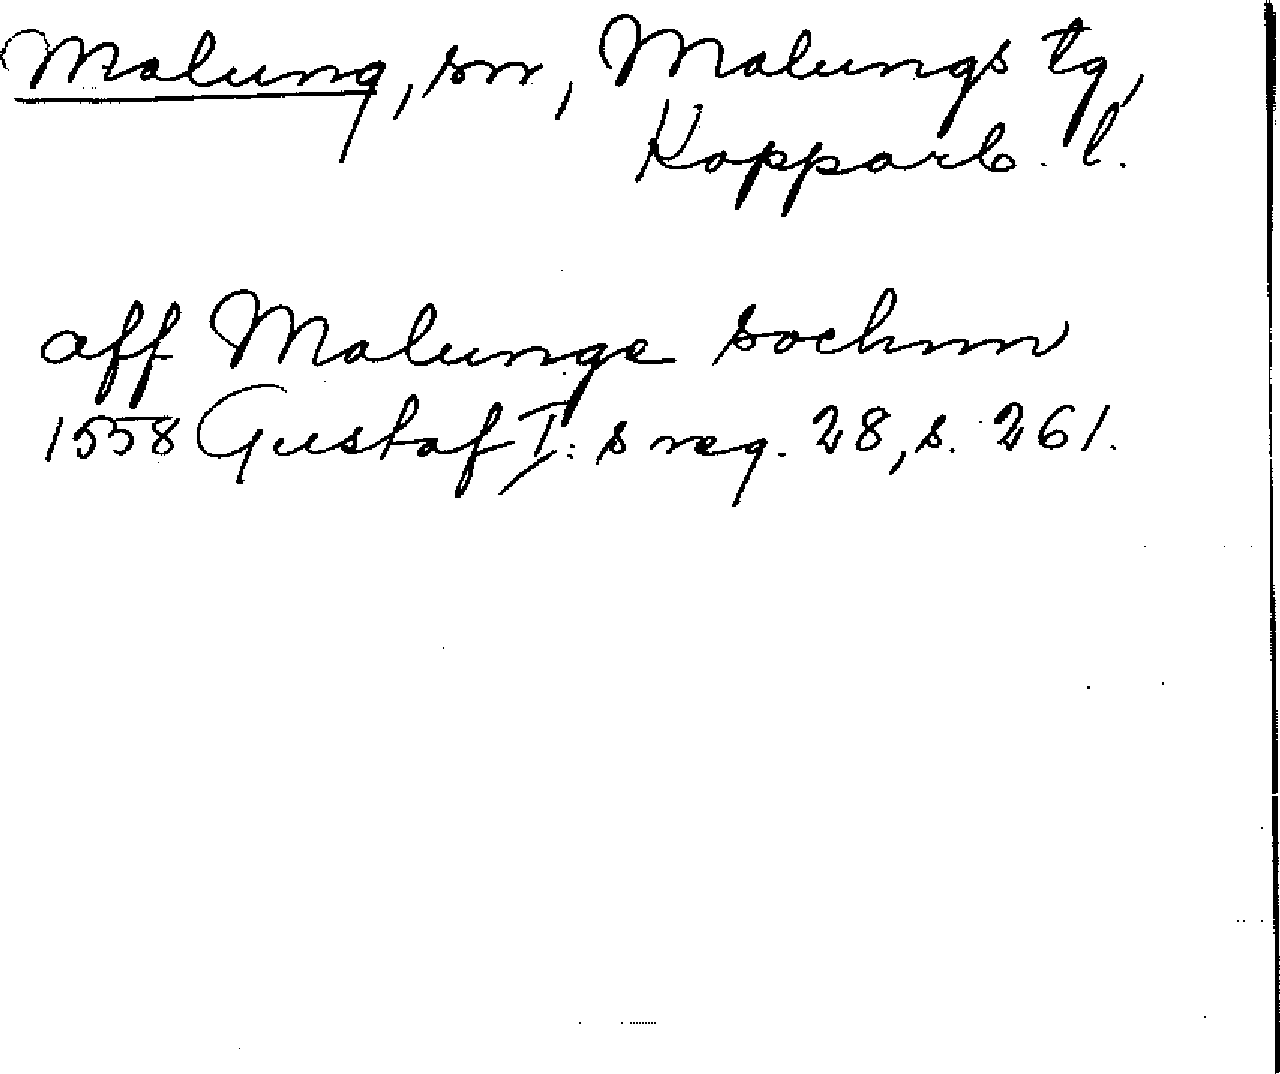 Malung, sn, Malungs tg,
Kopparb. l.
aff Malunge sochnn
1558 Gustaf I:s reg. 28, s. 261.